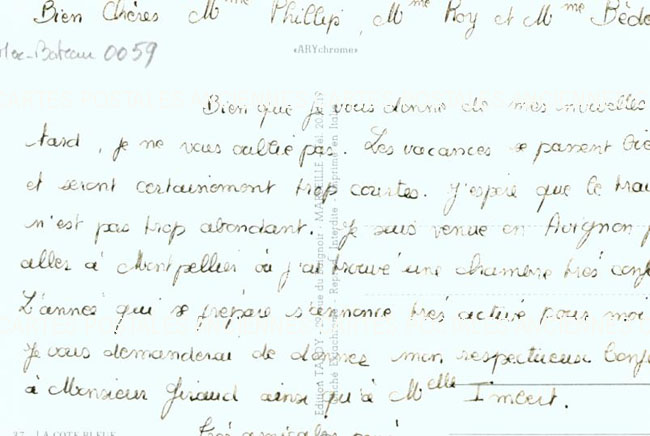 Bien Chères Mme Phillip, Mme Roy et Mme Bédo
«ARYchrome»
Bateau 0059
Bien que je vous donne de mes nouvelles
tard, je ne vous oublie pas. Les vacances se passent bie
et seront certainement trop courtes. J'espère que le trav
n'est pas trop abondant. Je suis venue en Avignon p
aller à Montpellier où j'ai trouvé une chambre très conf
L'année qui se prépare s'annonce très active pour moi
Je vous demanderai de donner mon respectueux bonj
à Monsieur Giraud ainsi qu'à Melle Imbert.
37 - LA COTE BLEUE
Très amicales